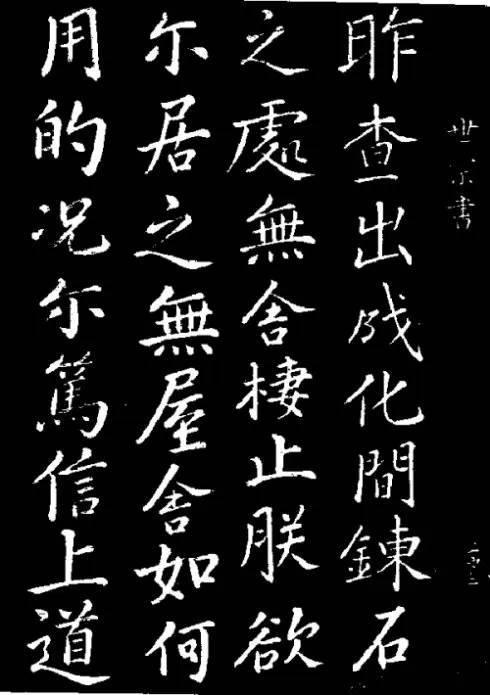 世宗書
昨查出成化間錬石
之處無舍棲止朕欲
尓居之無屋舍如何
用的况尓篤信上道